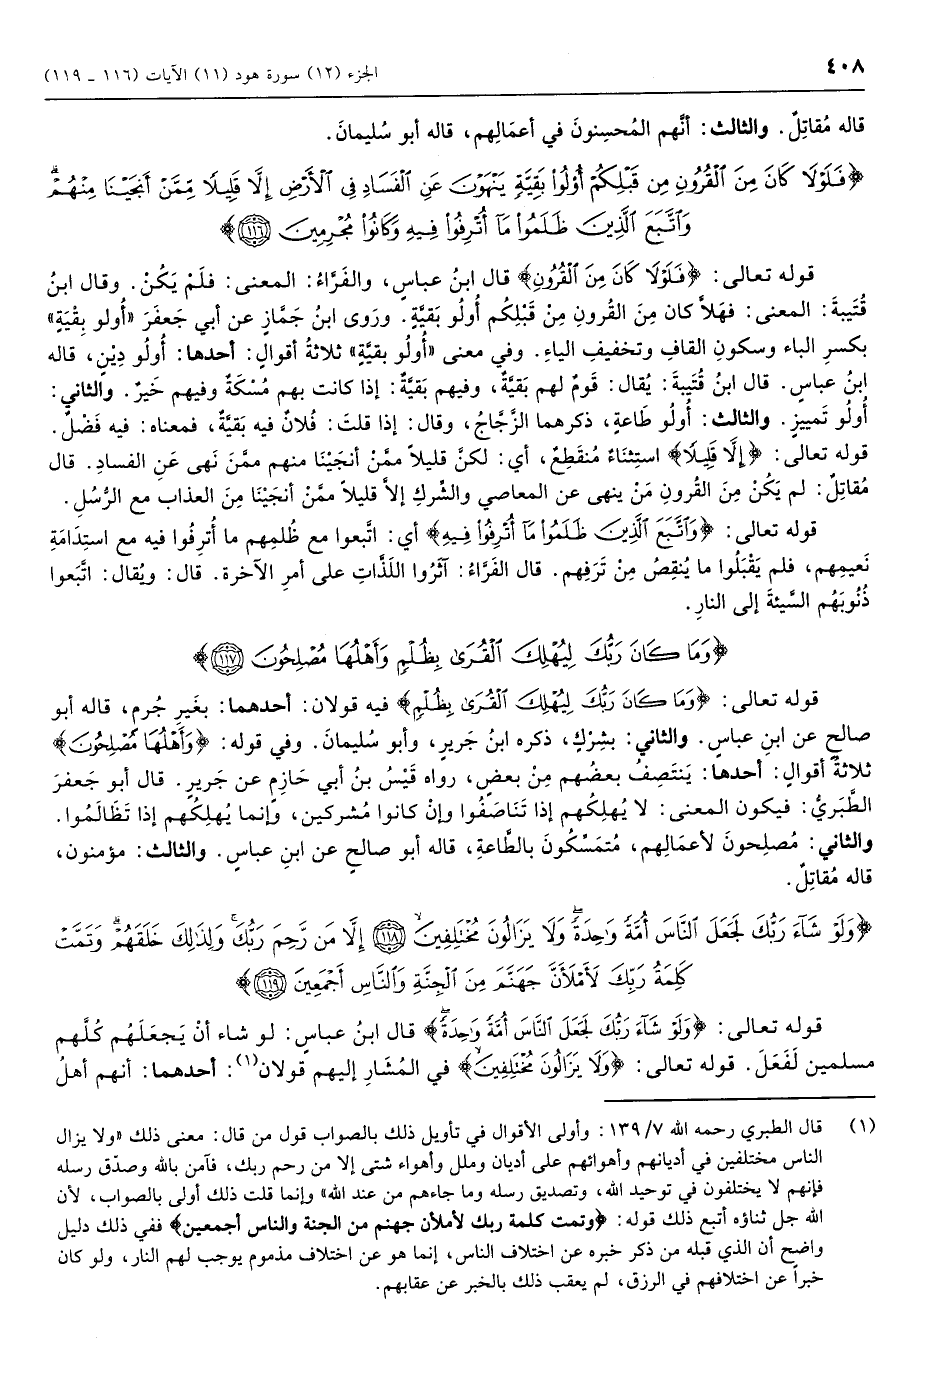 ٤٠٨ الجزء (١٢) سورة هود (١١) الآيات (١١٦ ـ ١١٩)
قاله مُقاتِلٌ. والثالث: أنَّهم المُحسِنونَ في أعمَالِهم، قاله أبو سُليمانَ.
﴿فَلَوْلَا كَانَ مِنَ ٱلْقُرُونِ مِن قَبْلِكُمْ أُوْلُواْ بَقِيَّةٍ يَنْهَوْنَ عَنِ ٱلْفَسَادِ فِى ٱلْأَرْضِ إِلَّا قَلِيلًا مِّمَّنْ أَنجَيْنَا مِنْهُمْۗ
وَٱتَّبَعَ ٱلَّذِينَ ظَلَمُواْ مَآ أُتْرِفُواْ فِيهِ وَكَانُواْ مُجْرِمِينَ ١١٦﴾
قوله تعالى: ﴿فَلَوْلَا كَانَ مِنَ ٱلْقُرُونِ﴾ قال ابنُ عباسٍ، والفَرَّاءُ: المعنى: فلَمْ يَكُنْ. وقال ابنُ
قُتَيبةَ: المعنى: فهَلاَّ كان مِنَ القُرونِ مِنْ قَبْلِكُم أُولُو بَقيَّةٍ. ورَوى ابنُ جَمَّازٍ عن أبي جَعفَرَ «أُولو بِقْيَةٍ»
بكسرِ الباء وسكونِ القافِ وتخفيفِ الياءِ. وفي معنى «أُولُو بقيَّةٍ» ثلاثةُ أقوالٍ: أحدها: أُولُو دِيْنٍ، قاله
ابنُ عباسٍ. قال ابنُ قُتَيبةَ: يُقال: قَومٌ لهم بَقيَّةٌ، وفيهم بَقيَّةٌ: إذا كانت بهم مُسْكَةٌ وفيهم خَيرٌ. والثاني:
أُولُو تَمييزٍ. والثالث: أُولُو طَاعةٍ، ذكرهما الزَّجَّاجُ، وقال: إذا قلتَ: فُلانٌ فيه بَقيَّةٌ، فمعناه: فيه فَضْلٌ.
قوله تعالى: ﴿إِلَّا قَلِيلًا﴾ استِثنَاءٌ مُنقَطِعٌ، أي: لكنَّ قليلاً ممَّنْ أنجَيْنَا منهم ممَّنَ نَهى عَنِ الفسادِ. قال
مُقاتِلٌ: لم يَكُنْ مِنَ القُرونِ مَنْ ينهى عن المعاصي والشِّركِ إلاَّ قليلاً ممَّنْ أنجَيْنَا مِنَ العذاب مع الرُّسُلِ.
قوله تعالى: ﴿وَٱتَّبَعَ ٱلَّذِينَ ظَلَمُواْ مَآ أُتْرِفُواْ فِيهِ﴾ أي: اتَّبعوا مع ظُلمِهم ما أُترِفُوا فيه مع استِدَامَةِ
نَعيمِهم، فلم يَقْبَلُوا ما يُنقِصُ مِنْ تَرَفِهم. قال الفَرَّاءُ: آثَرُوا اللَّذَّاتِ على أمرِ الآخرة. قال: ويُقال: اتَّبَعوا
ذُنُوبَهُم السَّيئةَ إلى النارِ.
﴿وَمَا كَانَ رَبُّكَ لِيُهْلِكَ ٱلْقُرَىٰ بِظُلْمٍ وَأَهْلُهَا مُصْلِحُونَ ١١٧﴾
قوله تعالى: ﴿وَمَا كَانَ رَبُّكَ لِيُهْلِكَ ٱلْقُرَىٰ بِظُلْمٍ﴾ فيه قولان: أحدهما: بغَيرِ جُرمٍ، قاله أبو
صالحٍ عن ابنِ عباسٍ. والثاني: بشِركٍ، ذكره ابنُ جَريرٍ، وأبو سُليمانَ. وفي قوله: ﴿وَأَهْلُهَا مُصْلِحُونَ﴾
ثلاثةُ أقوالٍ: أحدها: يَنتَصِفُ بعضُهم مِنْ بعضٍ، رواه قَيْسُ بنُ أبي حَازِمٍ عن جَريرٍ. قال أبو جَعفرَ
الطَّبَريُّ: فيكون المعنى: لا يُهلِكُهم إذا تَنَاصَفُوا وإنْ كانوا مُشركين، وإنما يهلِكُهم إذا تَظَالَمُوا.
والثاني: مُصلِحونَ لأعمَالِهم، مُتمَسِّكُونَ بالطَّاعةِ، قاله أبو صالحٍ عن ابنِ عباسٍ. والثالث: مؤمنون،
قاله مُقاتِلٌ.
﴿وَلَوْ شَآءَ رَبُّكَ لَجَعَلَ ٱلنَّاسَ أُمَّةً وَٰحِدَةًۖ وَلَا يَزَالُونَ مُخْتَلِفِينَۙ ١١٨ إِلَّا مَن رَّحِمَ رَبُّكَۚ وَلِذَٰلِكَ خَلَقَهُمْۗ وَتَمَّتْ
كَلِمَةُ رَبِّكَ لَأَمْلَأَنَّ جَهَنَّمَ مِنَ ٱلْجِنَّةِ وَٱلنَّاسِ أَجْمَعِينَ ١١٩﴾
قوله تعالى: ﴿وَلَوْ شَآءَ رَبُّكَ لَجَعَلَ ٱلنَّاسَ أُمَّةً وَٰحِدَةًۖ﴾ قال ابنُ عباسٍ: لو شاء أنْ يَجعَلَهُم كُلَّهم
مسلمين لَفَعَلَ. قوله تعالى: ﴿وَلَا يَزَالُونَ مُخْتَلِفِينَۙ﴾ في المُشَارِ إليهم قولان(١): أحدهما: أنهم أهلُ
(١) قال الطبري رحمه الله ٧/ ١٣٩: وأولى الأقوال في تأويل ذلك بالصواب قول من قال: معنى ذلك «ولا يزال
الناس مختلفين في أديانهم وأهوائهم على أديان وملل وأهواء شتى إلا من رحم ربك، فآمن بالله وصدّق رسله
فإنهم لا يختلفون في توحيد الله، وتصديق رسله وما جاءهم من عند الله» وإنما قلت ذلك أولى بالصواب، لأن
الله جل ثناؤه أتبع ذلك قوله: ﴿وتمت كلمة ربك لأملأن جهنم من الجنة والناس أجمعين﴾ ففي ذلك دليل
واضح أن الذي قبله من ذكر خبره عن اختلاف الناس، إنما هو عن اختلاف مذموم يوجب لهم النار، ولو كان
خبراً عن اختلافهم في الرزق، لم يعقب ذلك بالخبر عن عقابهم.